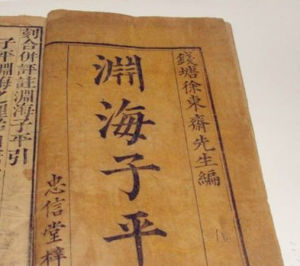 錢塘徐東齋先生編
淵海子平
忠信堂梓
刻合併評註淵海子平引
子平淵海